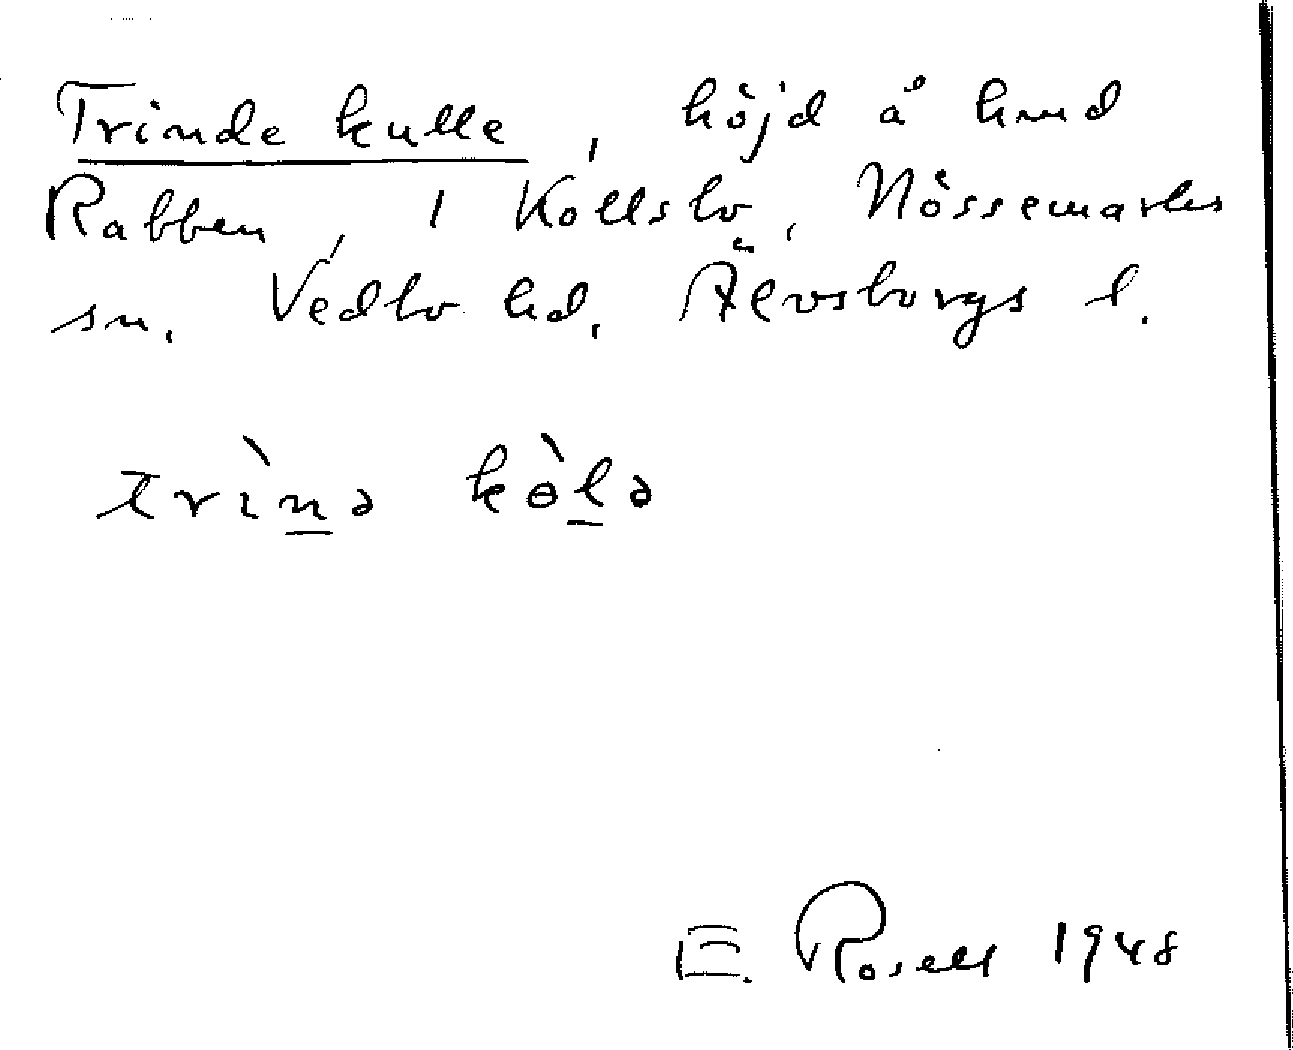 Trinde kulle, höjd å hmd
Rabben, 1 Kollsbo, Nössemarks
sn. Vedbo hd. Älvsborgs l.
trìnə kòlə
E. Rosell 1948